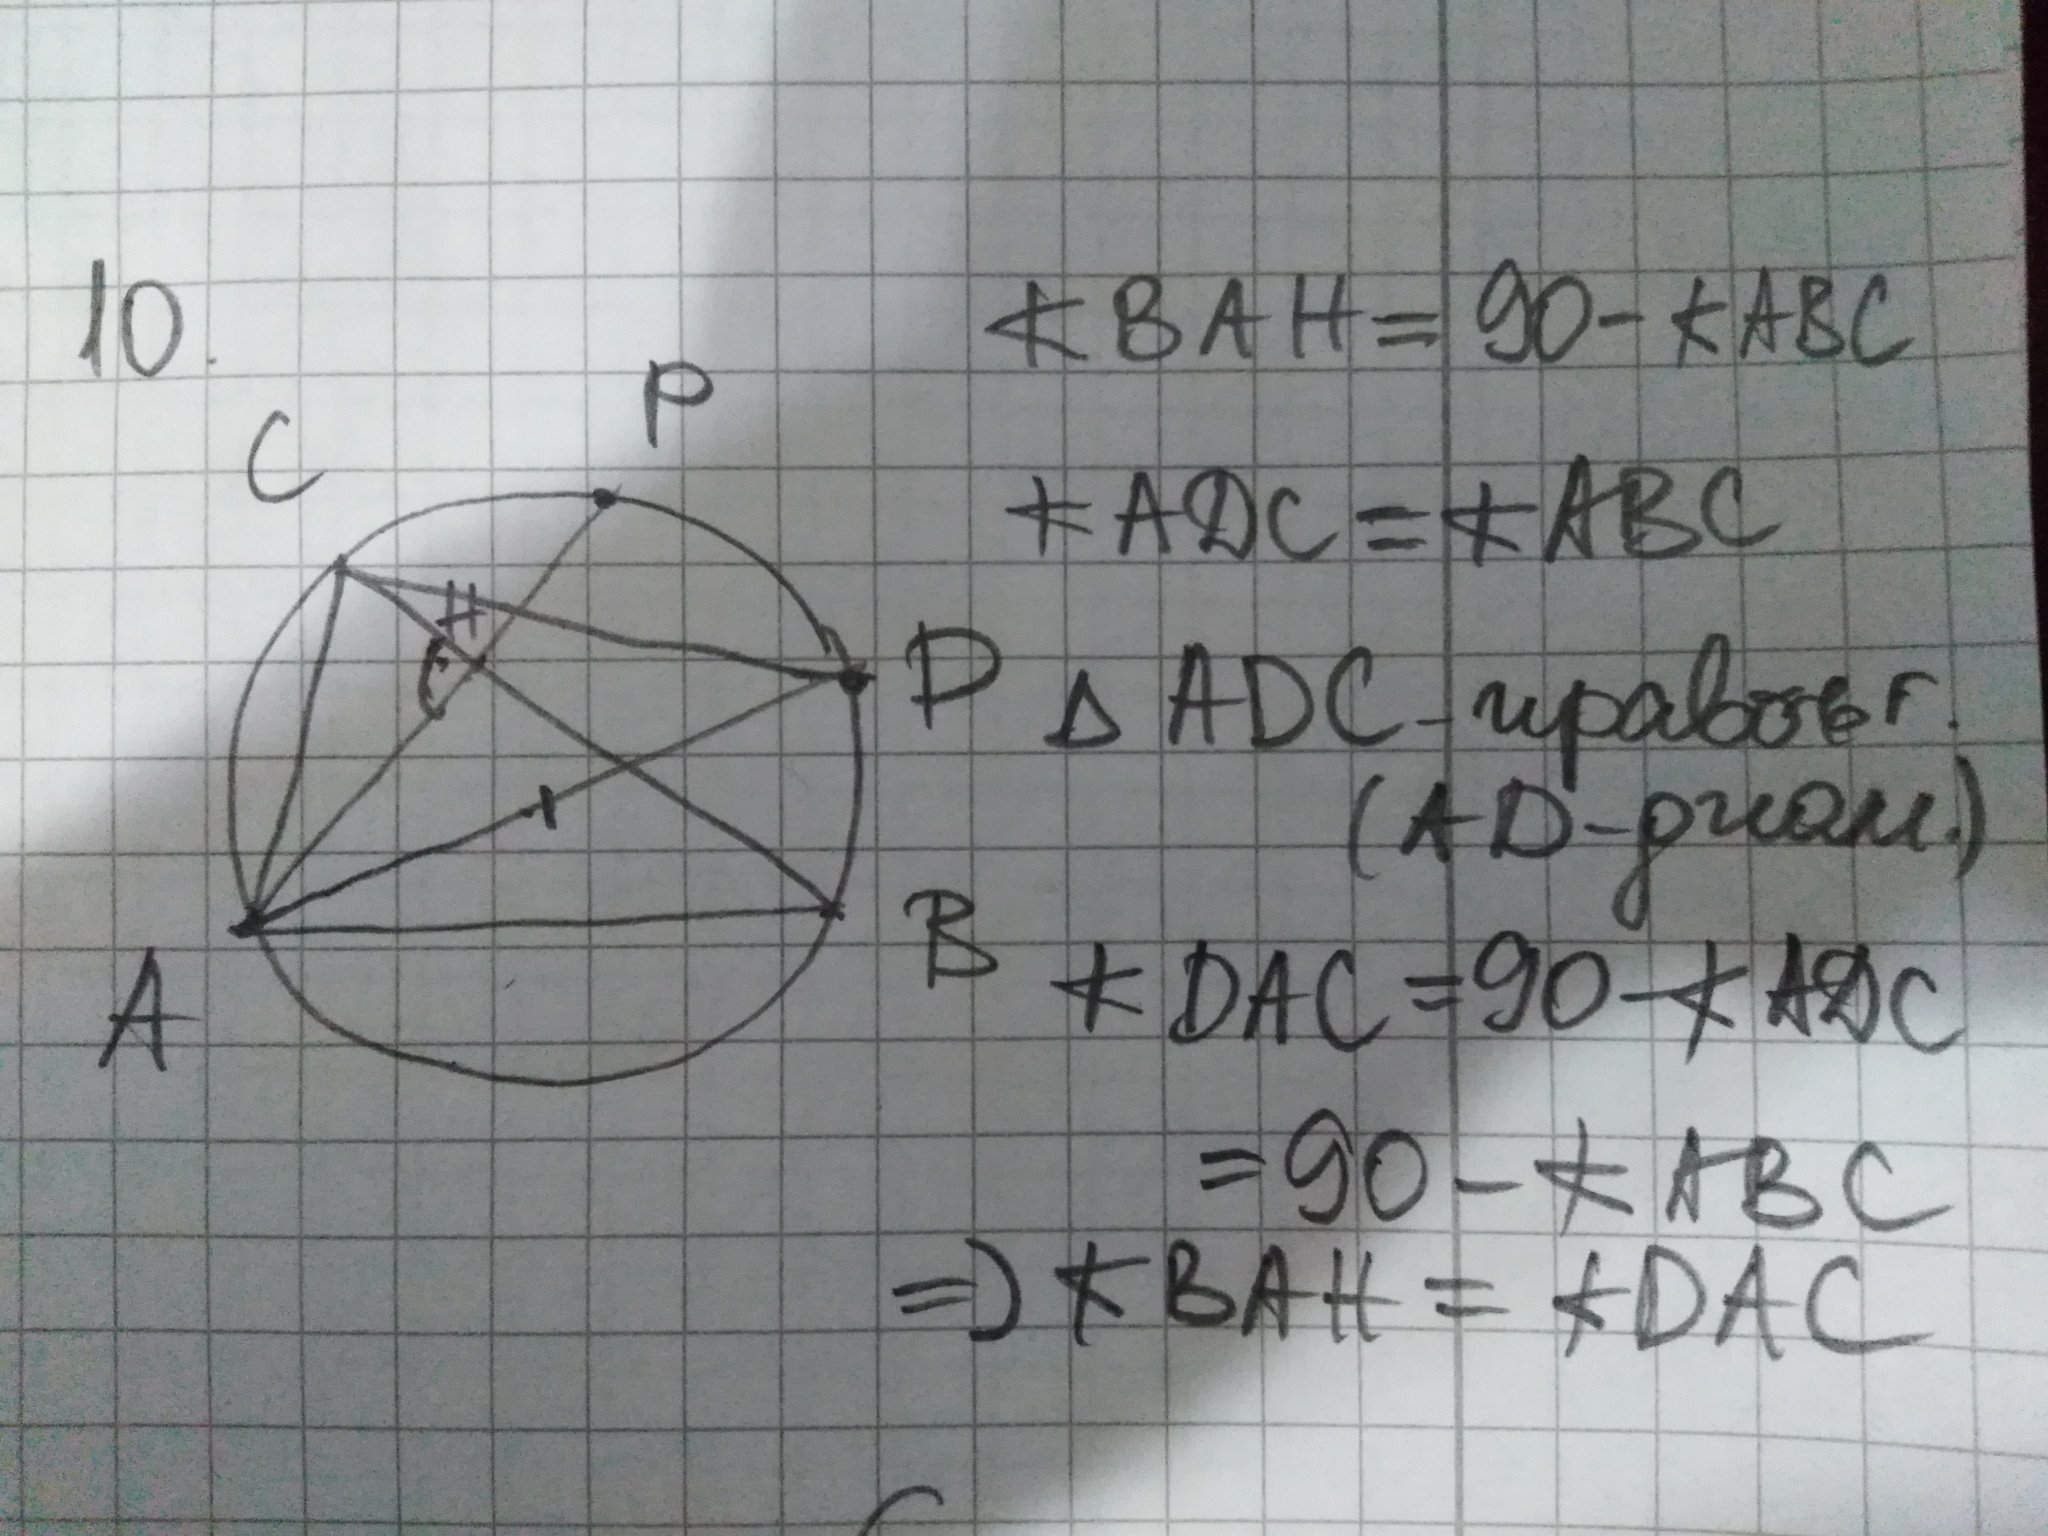 10.
C
P
H
D
A
B
∠BAH = 90 - ∠ABC
∠ADC = ∠ABC
Δ ADC - прямоуг.
(AD - диам.)
∠DAC = 90 - ∠ADC
= 90 - ∠ABC
=> ∠BAH = ∠DAC